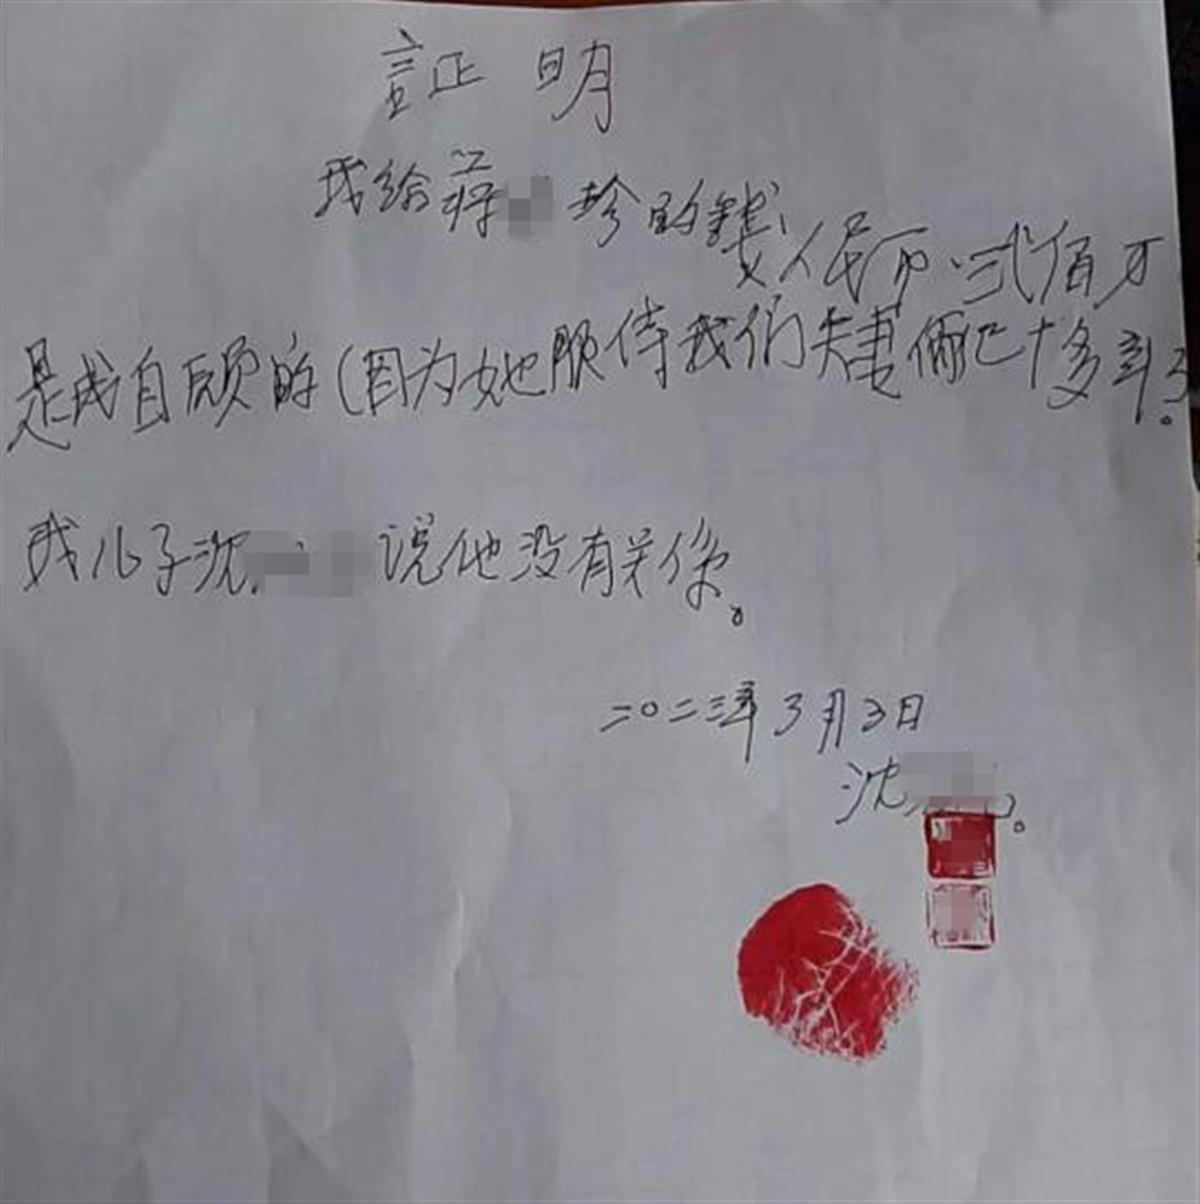 証明
我给蒋 珍的錢人民币.弍佰万
是我自顾的(因为她服侍我们夫妻俩已十多年了。
我儿子沈 说他没有关係。
二〇二三年3月3日
沈